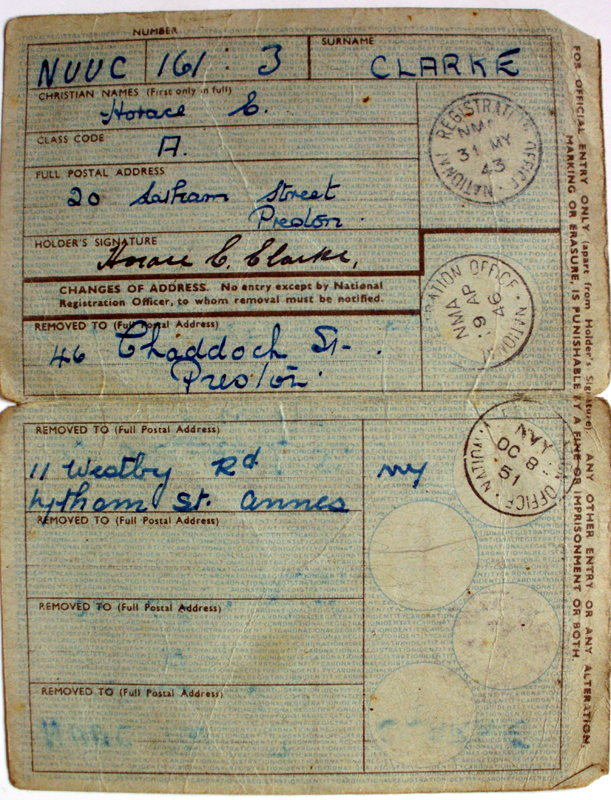 NUMBER
SURNAME
NUUC 161 : 3
CLARKE
CHRISTIAN NAMES (First only in full)
Horace C.
CLASS CODE
A.
FULL POSTAL ADDRESS
20 Street
Preston.
HOLDER'S SIGNATURE
Horace C. Clarke,
NATIONAL REGISTRATION OFFICE
NM
31 MY
43
CHANGES OF ADDRESS. No entry except by National
Registration Officer, to whom removal must be notified.
REMOVED TO (Full Postal Address)
46 Chaddock St.
Preston.
RATION OFFICE · NATIONAL
NMA
19 AP
46
REMOVED TO (Full Postal Address)
11 Westby Rd
Lytham St. Annes
NATIONAL OFFICE
NVY
OC 8
51
REMOVED TO (Full Postal Address)
REMOVED TO (Full Postal Address)
REMOVED TO (Full Postal Address)
FOR OFFICIAL ENTRY ONLY (apart from Holder's Signature). ANY OTHER ENTRY OR ANY ALTERATION,
MARKING OR ERASURE, IS PUNISHABLE BY A FINE OR IMPRISONMENT OR BOTH.